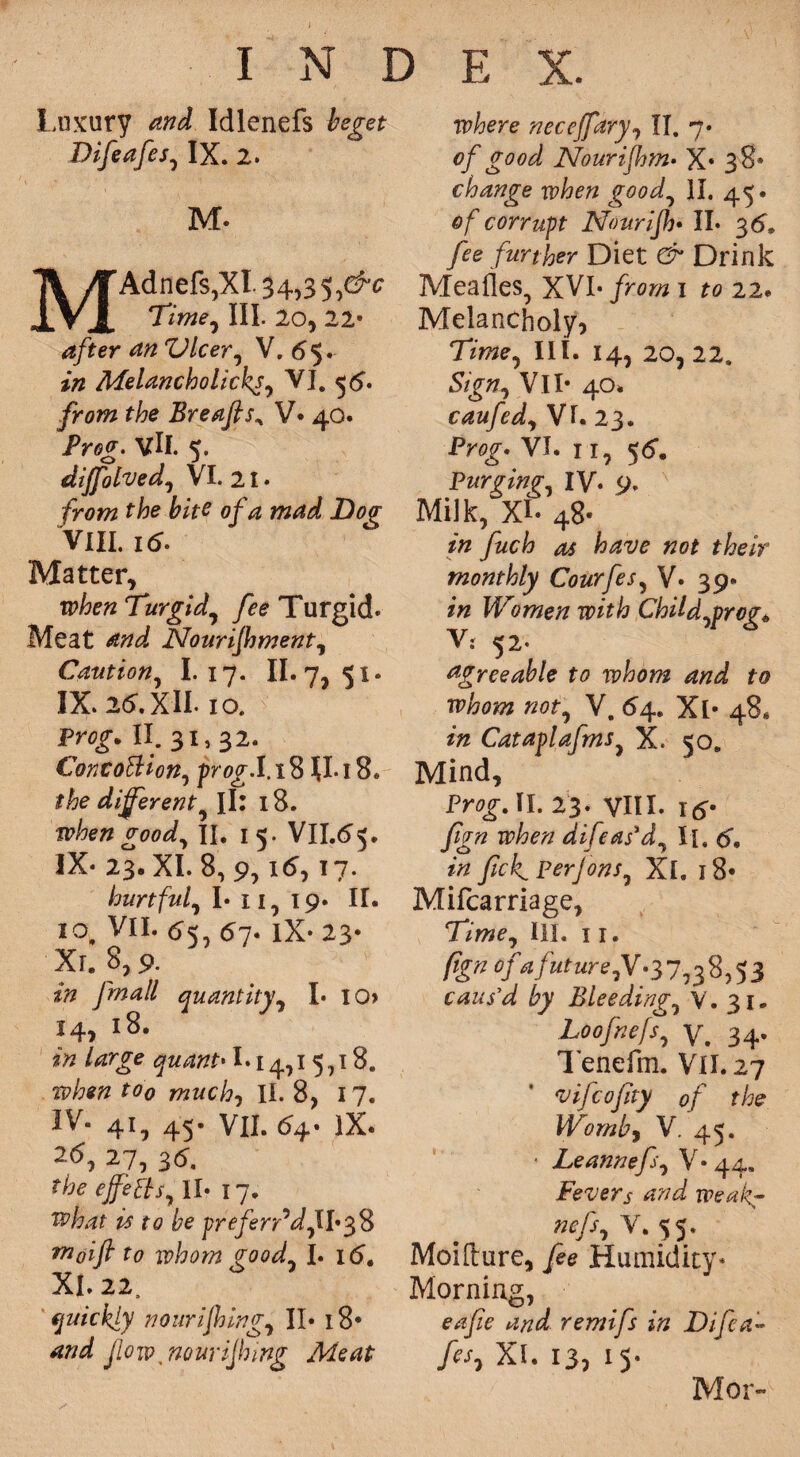 INDEX.
Luxury and Idleneſs beget
Diſeaſes, IX. 2.
M.
MAdneſs,XI. 34,35,&c
Time, III. 20, 22.
after an Ulcer, V. 65.
in Melancholicks, VI. 56.
from the Breaſts, V. 40.
Prog. VII. 5.
diſſolved, VI. 21.
from the bite of a mad Dog
VIII. 16.
Matter,
when Turgid, ſee Turgid.
Meat and Nouriſhment,
Caution, I. 17. II. 7, 51.
IX. 26. XII. 10.
Prog. II. 31, 32.
Concoction, prog.I.18 II.18.
the different, II: 18.
when good, II. 15. VII.65.
IX. 23. XI. 8, 9, 16, 17.
hurtful, I. 11, 19. II.
10. VII. 65, 67. IX. 23.
XI. 8, 9.
in ſmall quantity, I. 10,
14, 18.
in large quant. I.14,15,18.
when too much, II. 8, 17.
IV. 41, 45. VII. 64. IX.
26, 27, 36.
the effects, II. 17.
What is to be preferr'd,II.38
moiſt to whom good, I. 16.
XI. 22.
quickly nouriſhing, II. 18.
and ſlow nouriſhing Meat
where neceſſary, II. 7.
of good Nouriſhm. X. 38.
change when good, II. 45.
of corrupt Nouriſh. II. 36.
ſee further Diet & Drink
Meaſles, XVI. from 1 to 22.
Melancholy,
Time, III. 14, 20, 22.
Sign, VII. 40.
cauſed, VI. 23.
Prog. VI. 11, 56.
Purging, IV. 9.
Milk, XI. 48.
in ſuch as have not their
monthly Courſes, V. 39.
in Women with Child,prog.
V: 52.
agreeable to whom and to
whom not, V. 64. XI. 48.
in Cataplaſms, X. 50.
Mind,
Prog. II. 23. VIII. 16.
ſign when diſeas'd, II. 6.
in ſick Perſons, XI. 18.
Miſcarriage,
Time, III. 11.
ſign of a future,V.37,38,53
caus'd by Bleeding, V. 31.
Looſneſs, V. 34.
Teneſm. VII. 27
viſcoſity of the
Womb, V. 45.
Leanneſs, V. 44.
Fevers and weak-
neſs, V. 55.
Moiſture, ſee Humidity.
Morning,
eaſie and remiſs in Diſea-
ſes, XI. 13, 15.
Mor-